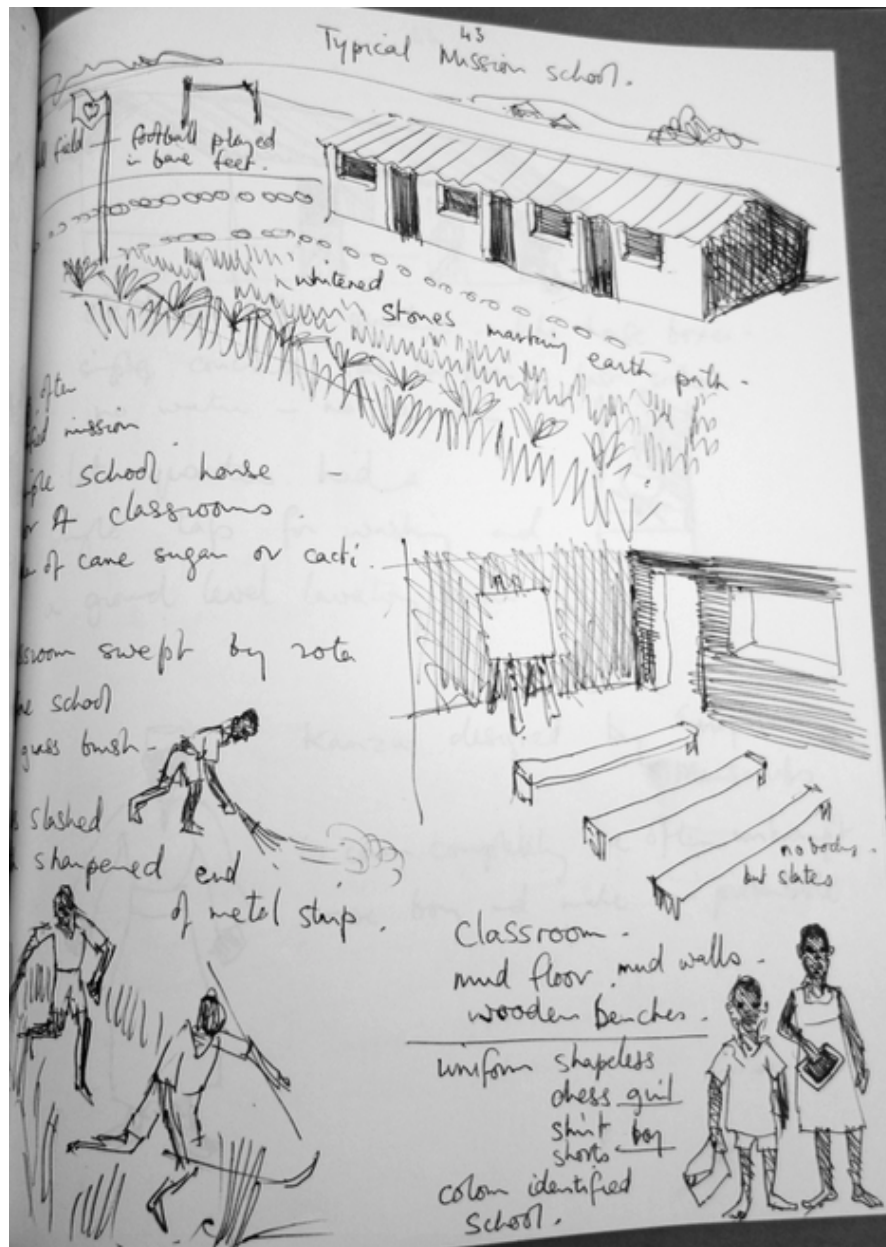 43
Typical Mission school.
field — football played
in bare feet.
whitened
stones marking earth path.
often
mission
school house –
4 classrooms.
of cane sugar or cacti.
swept by rota
school
grass brush –
slashed
sharpened end
of metal strip.
no books
but slates
Classroom.
mud floor, mud walls.
wooden benches.
uniform shapeless
dress girl
shirt boy
shorts
colour identified
School.